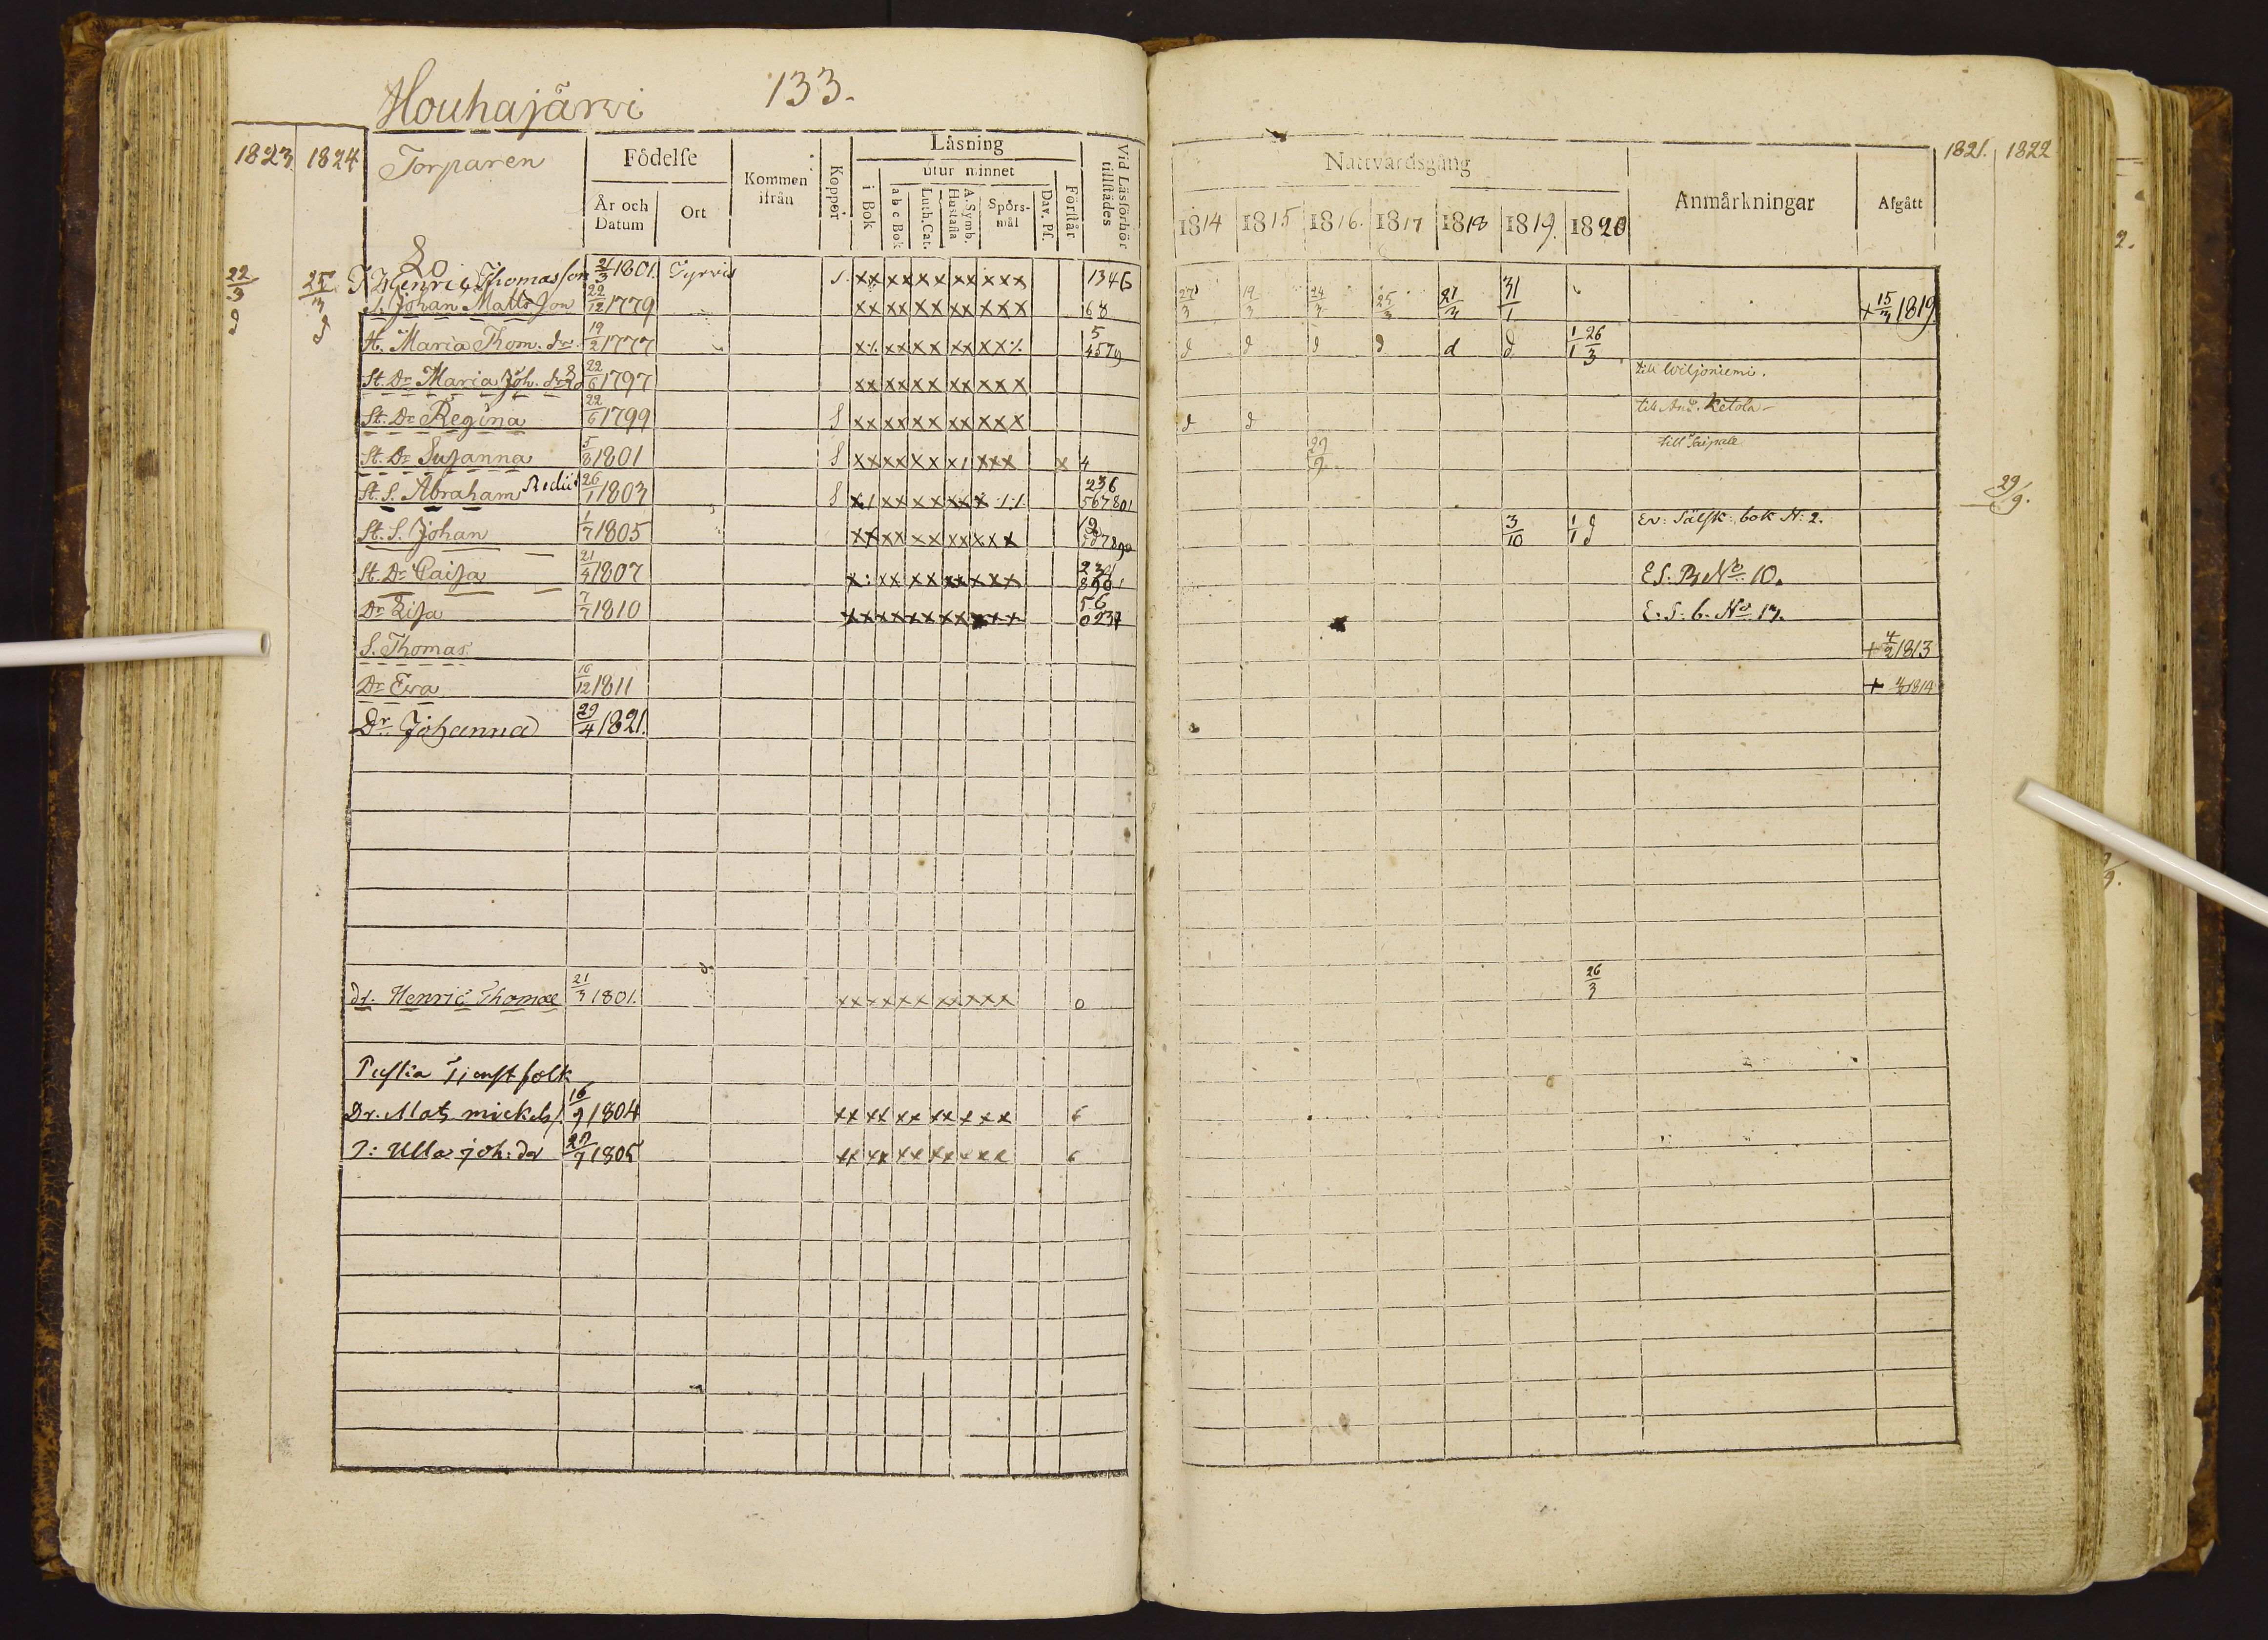 Houhajärvi 133.
1823. 1824 Torparen Födelse År och Datum Ort Kommen ifrån Koppor Läsning i Bok utur minnet a b c Bok Luth. Cat. A. Symb. Hustafla Spörsmål Dav. Ps. Förstår Vid Läsförhör tillstädes
Nattvardsgång 1814 1815 1816. 1817 1818 1819. 1820 Anmärkningar Afgått 1821. 1822
22/3 25/3 T. Henric Thomasson 21/3 1801. Tyrvis S. xx xx xx xx xxx 1346
S. Johan Matts Son 22/12 1779 xx xx xx xx xxx 68 27/3 19/3 24/3 25/3 21/3 31/1 + 15/3 1819.
H. Maria Thom. dr. 19/2 1777 x% xx xx xx xx% 5 4579 d d d d d d 1/1 26/3
St. Dr. Maria Joh. dr 22/6 1797 xx xx xx xx xxx till Wiljoniemi.
St. Dr Regina 22/6 1799 S xx xx xx xx xxx d d till And. Ketola
St. Dr Susanna 5/8 1801 S xx xx xx x/ xxx x 4 29/9 till Taipale
St. S. Abraham Rediit 26/1 1803 S x/ xx xx xx x 236 567801 29/9.
St. S. Johan 1/7 1805 xx xx xx xx xxx 3/10 1/1 Ev: Sälsk: bok N: 2.
St. Dr Caisa 21/4 1807 x: xx xx xx xxx E S. B No 10.
Dr Lisa 7/7 1810 xx xx xx xx xxx 56 0234 E. S. b. No 17.
S. Thomas + 4/2 1813
Dr Eva 16/12 1811 + 1814
Dr Johanna 29/4 1821.
dr. Henric Thomae 21/3 1801. xx xx xx xx xxx 0 26/3
Tjenst folk
Dr. Mats mickels 16/9 1804 xx xx xx xx xxx 6
P: Ulla joh: dr 27/7 1805 xx xx xx xx xxx 6